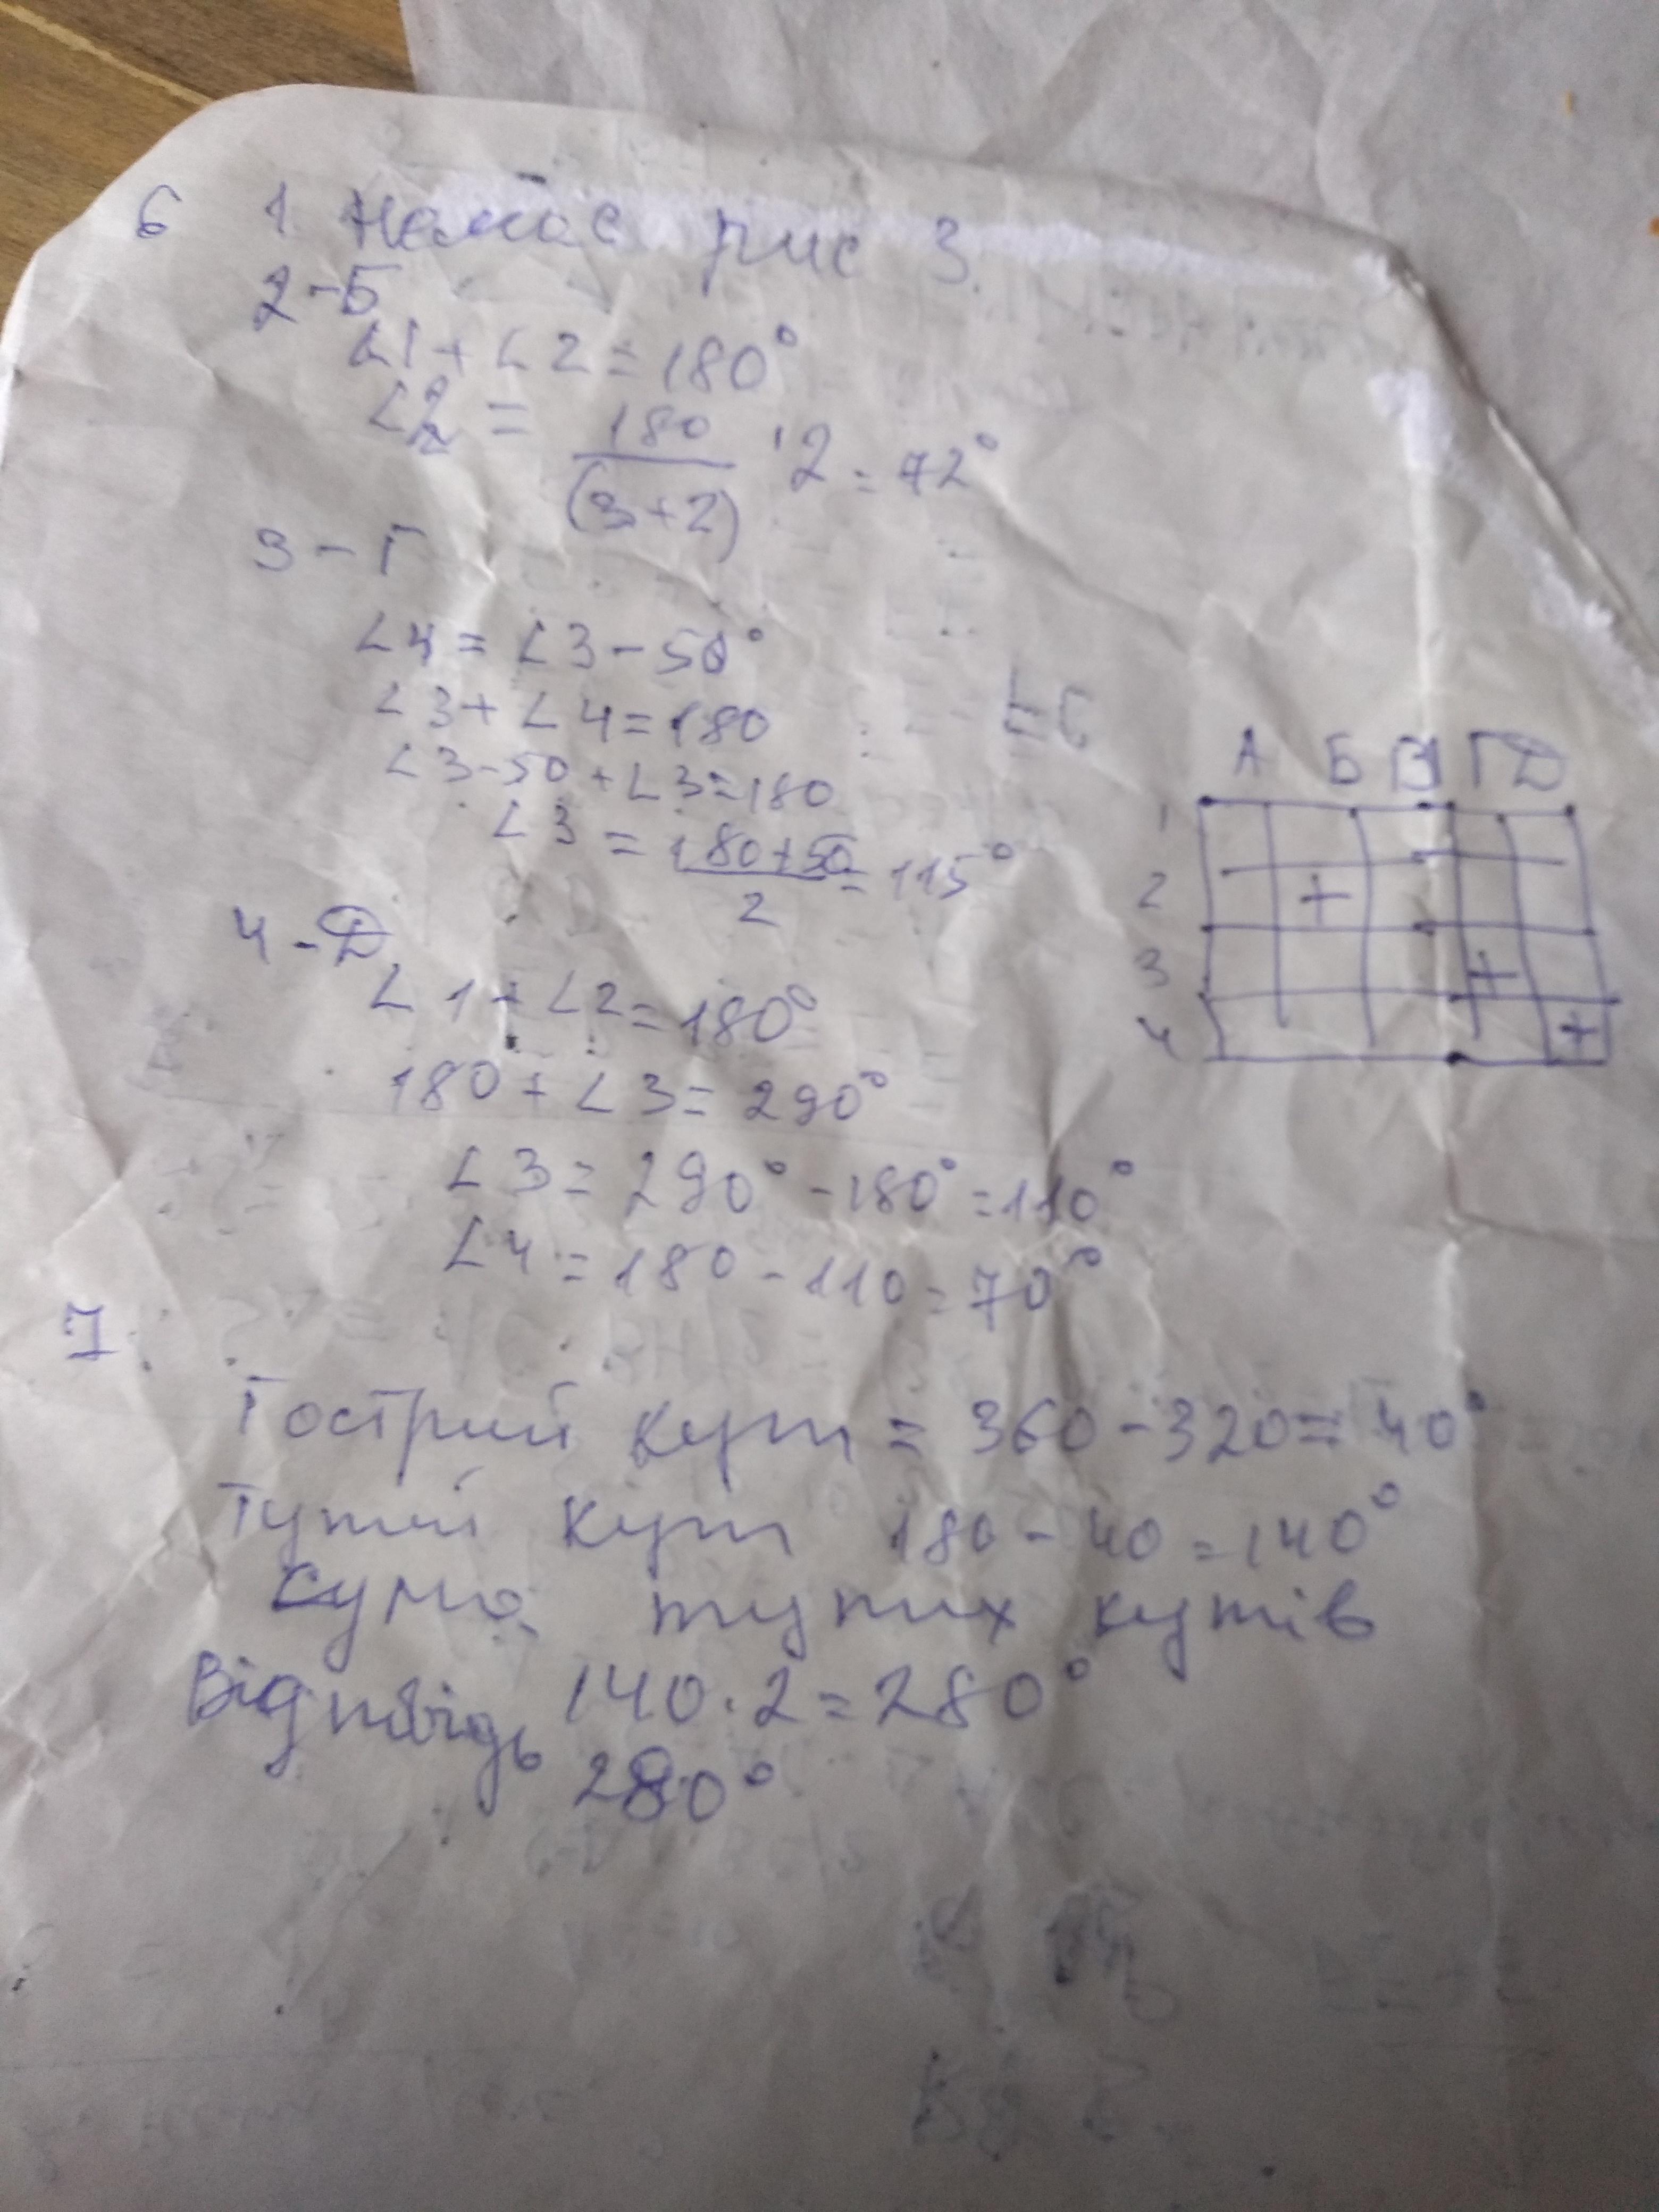 6 1. Немає рис 3
2-Б
∠1+∠2=180°
∠2 = 180/(3+2) · 2 = 72°
3-Г
∠4=∠3-50°
∠3+∠4=180
∠3-50+∠3=180
∠3 = (180+50)/2 = 115°
4-Д
∠1+∠2=180°
180+∠3=290°
∠3=290°-180°=110°
∠4=180-110=70°
А Б В Г Д
1
2 +
3 +
4 +
7
Гострий кут = 360-320=40°
Тупий кут 180-40=140°
Сума тупих кутів
140·2=280°
Відповідь 280°